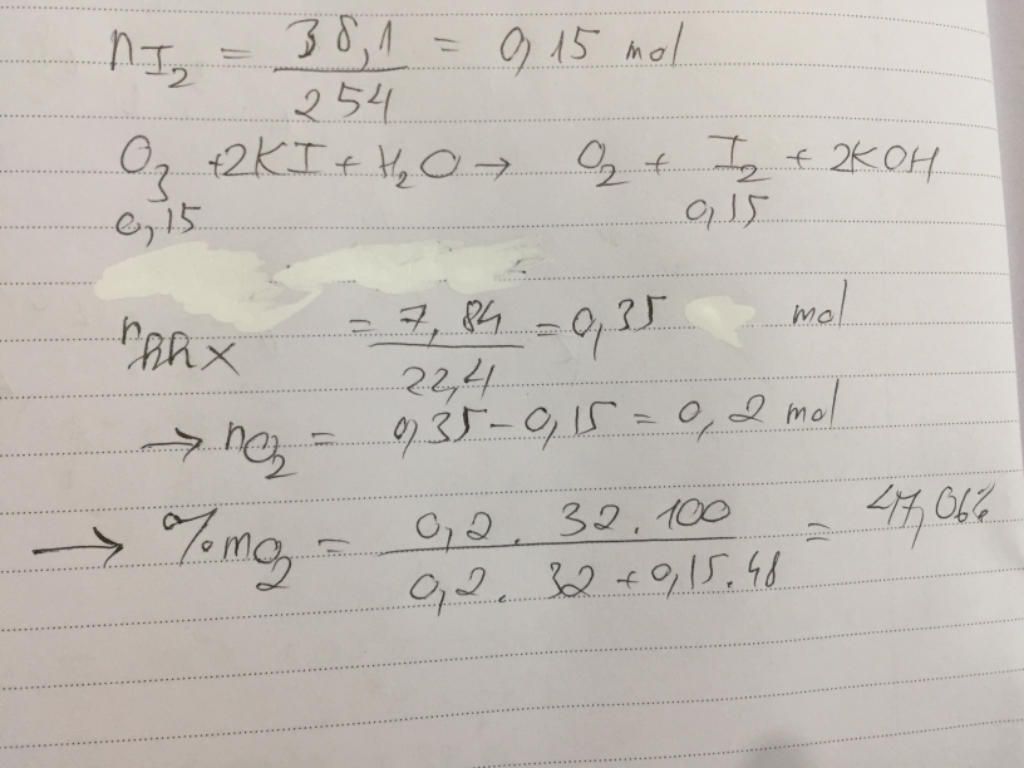 nI₂ = 38,1 / 254 = 0,15 mol
O₃ + 2KI + H₂O → O₂ + I₂ + 2KOH
0,15 0,15
nhh X = 7,84 / 22,4 = 0,35 mol
→ nO₂ = 0,35 - 0,15 = 0,2 mol
→ %mO₂ = 0,2 . 32 . 100 / 0,2 . 32 + 0,15 . 48 = 47,06%